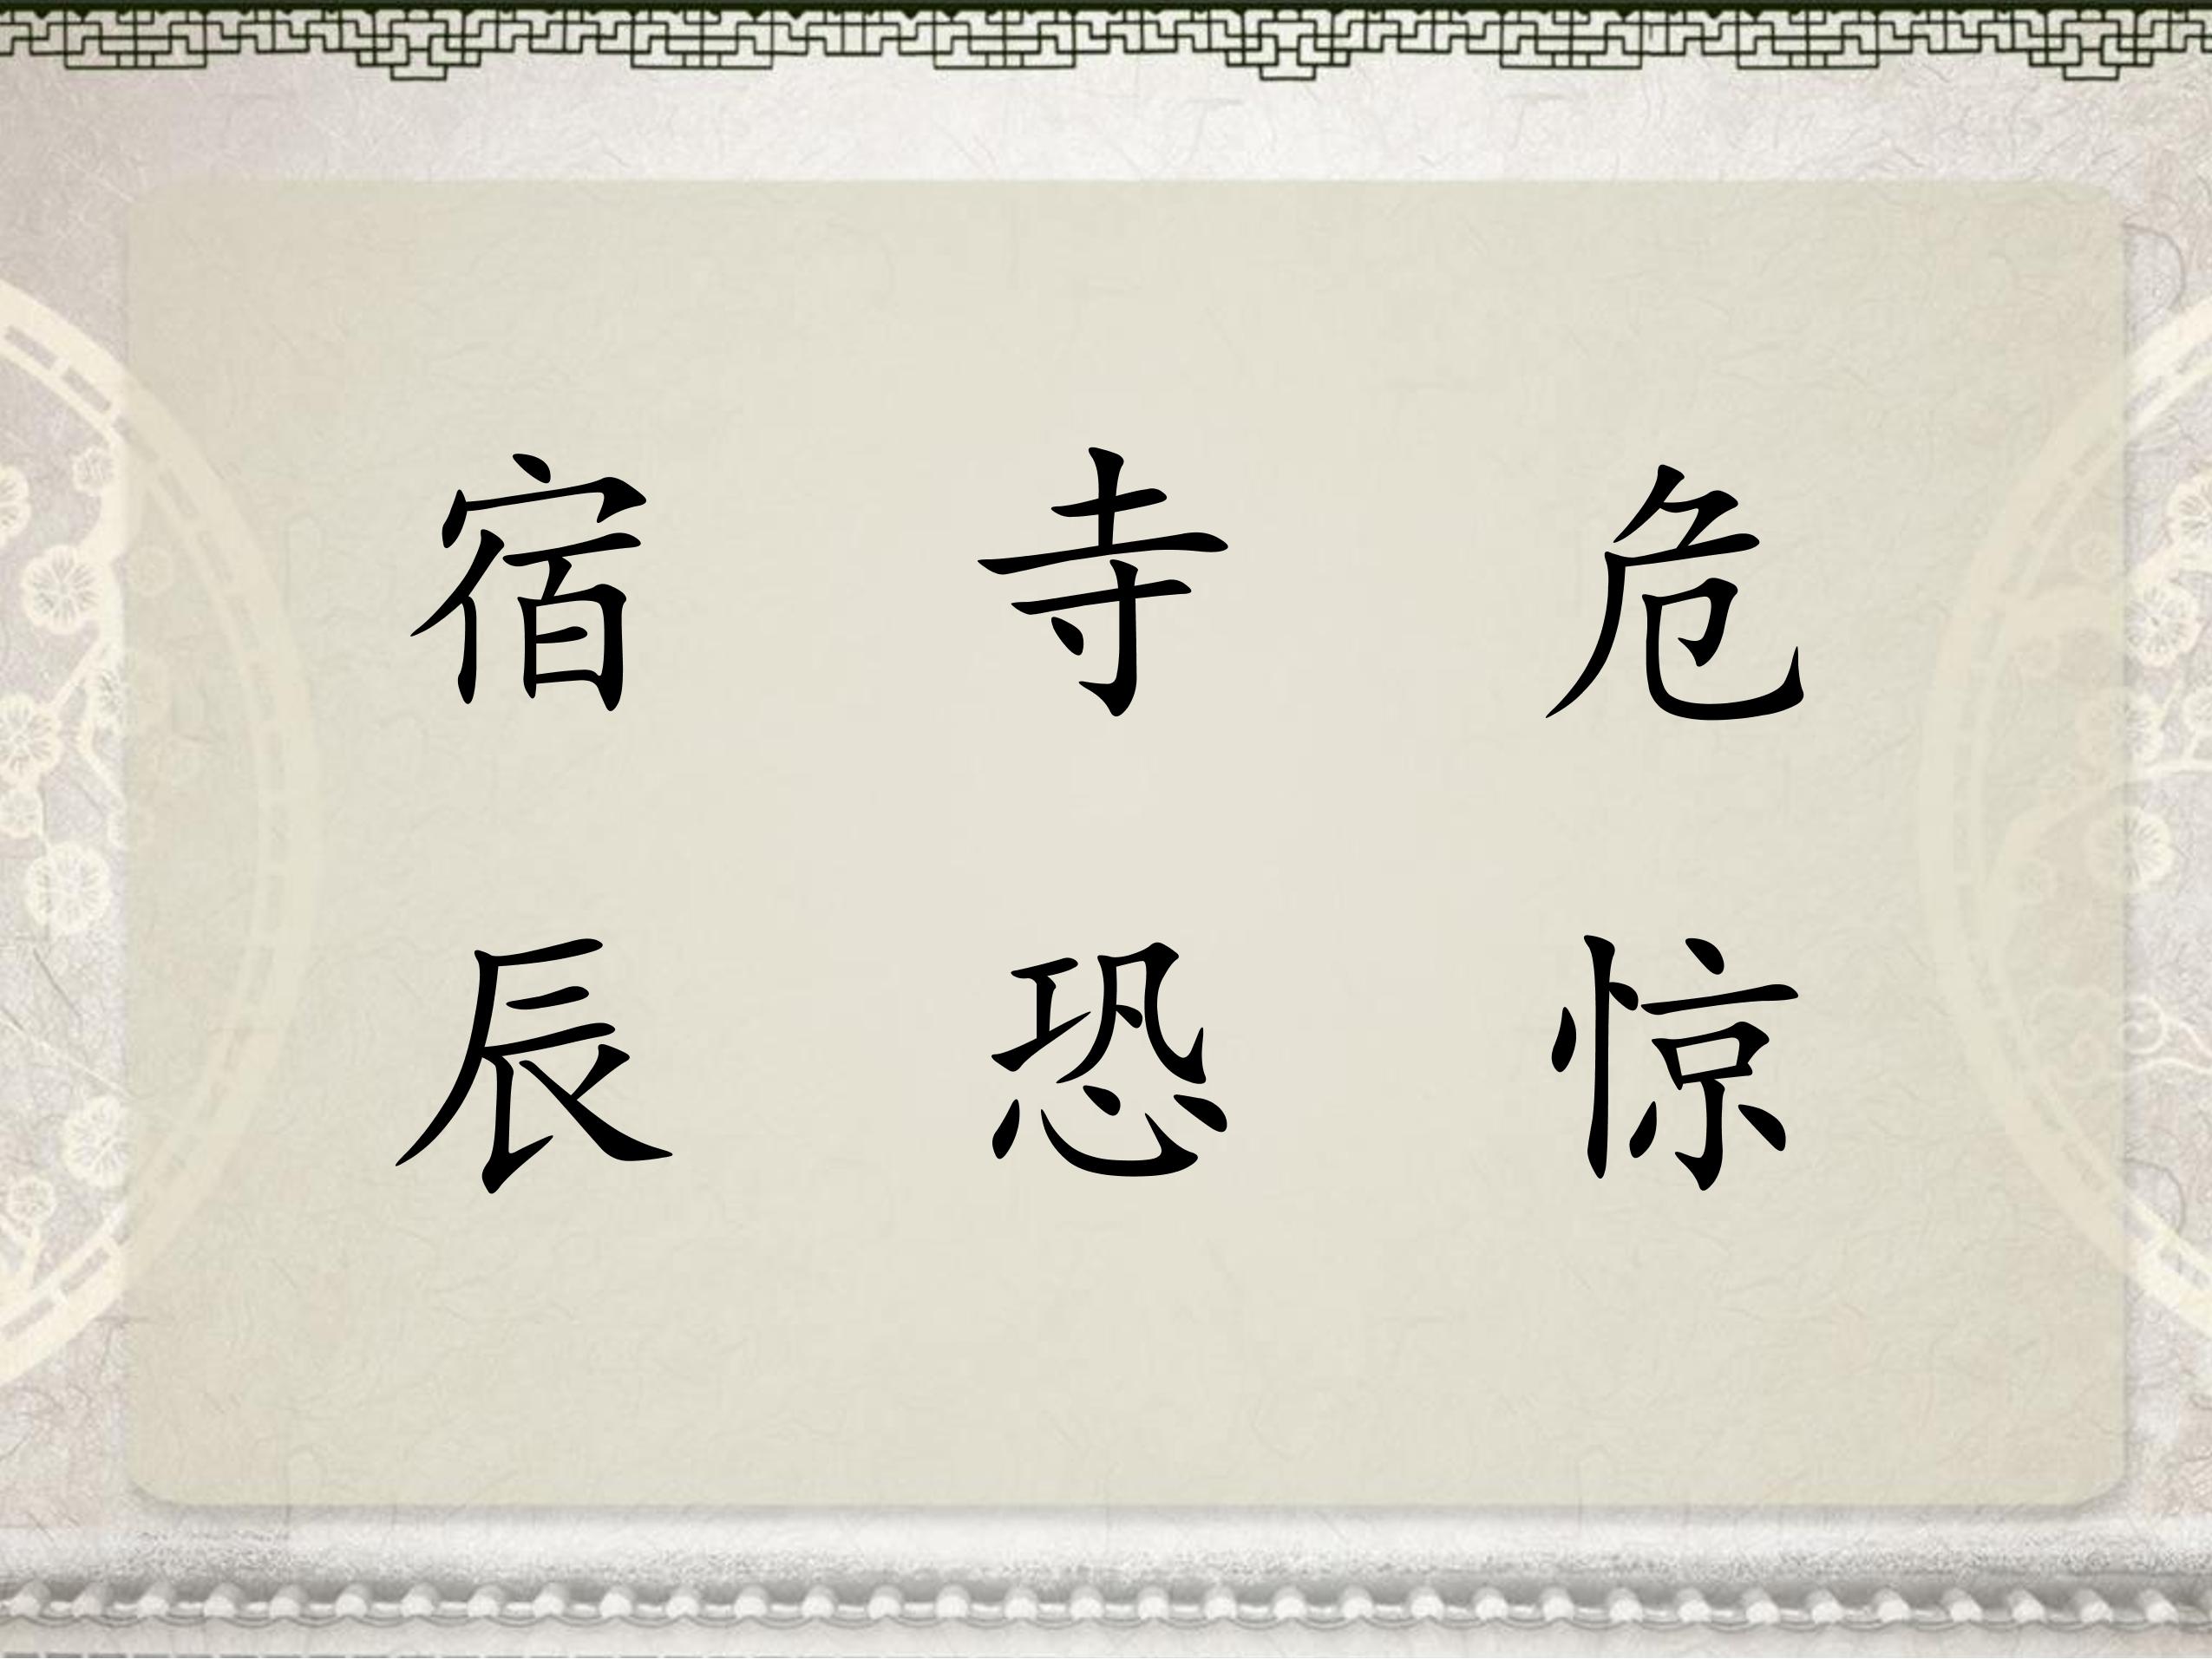 宿 寺 危
辰 恐 惊